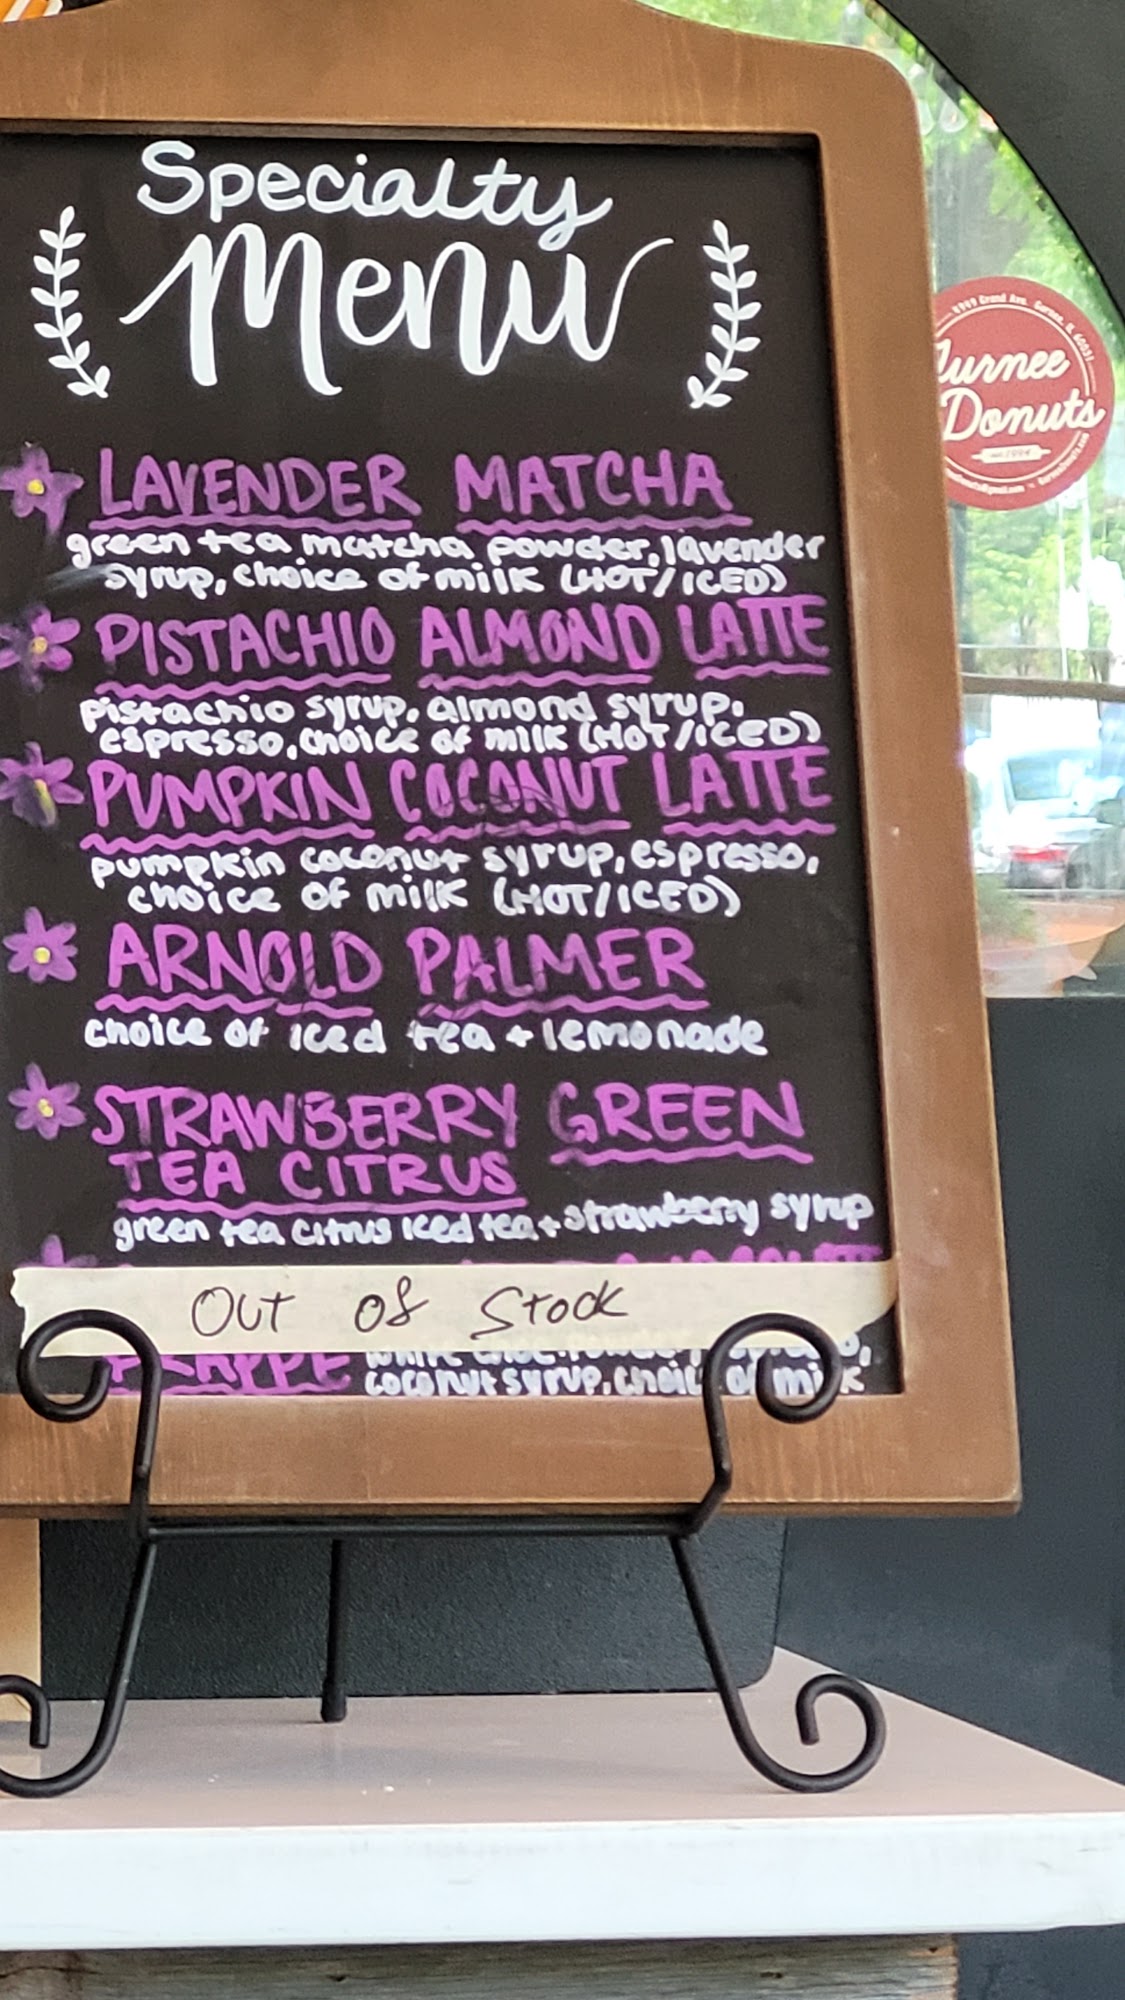 Specialty
Menu
LAVENDER MATCHA
green tea matcha powder, lavender
syrup, choice of milk (HOT/ICED)
PISTACHIO ALMOND LATTE
pistachio syrup, almond syrup,
espresso, choice of milk (HOT/ICED)
PUMPKIN COCONUT LATTE
pumpkin coconut syrup, espresso,
choice of milk (HOT/ICED)
ARNOLD PALMER
choice of iced tea + lemonade
STRAWBERRY GREEN
TEA CITRUS
green tea citrus iced tea + strawberry syrup
OUT OF STOCK
FRAPPE
coconut syrup, choice of milk
4949 Grand Ave. Gurnee, IL 60031
Gurnee
Donuts